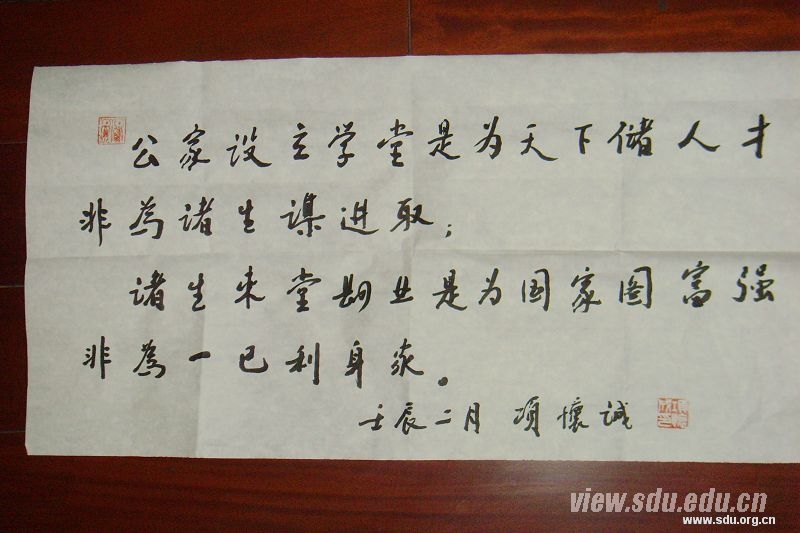 公家设立学堂是为天下储人才
非為诸生谋进取；
诸生来堂肄业是为国家图富强
非為一己利身家。
壬辰二月 项懷诚
view.sdu.edu.cn
www.sdu.org.cn